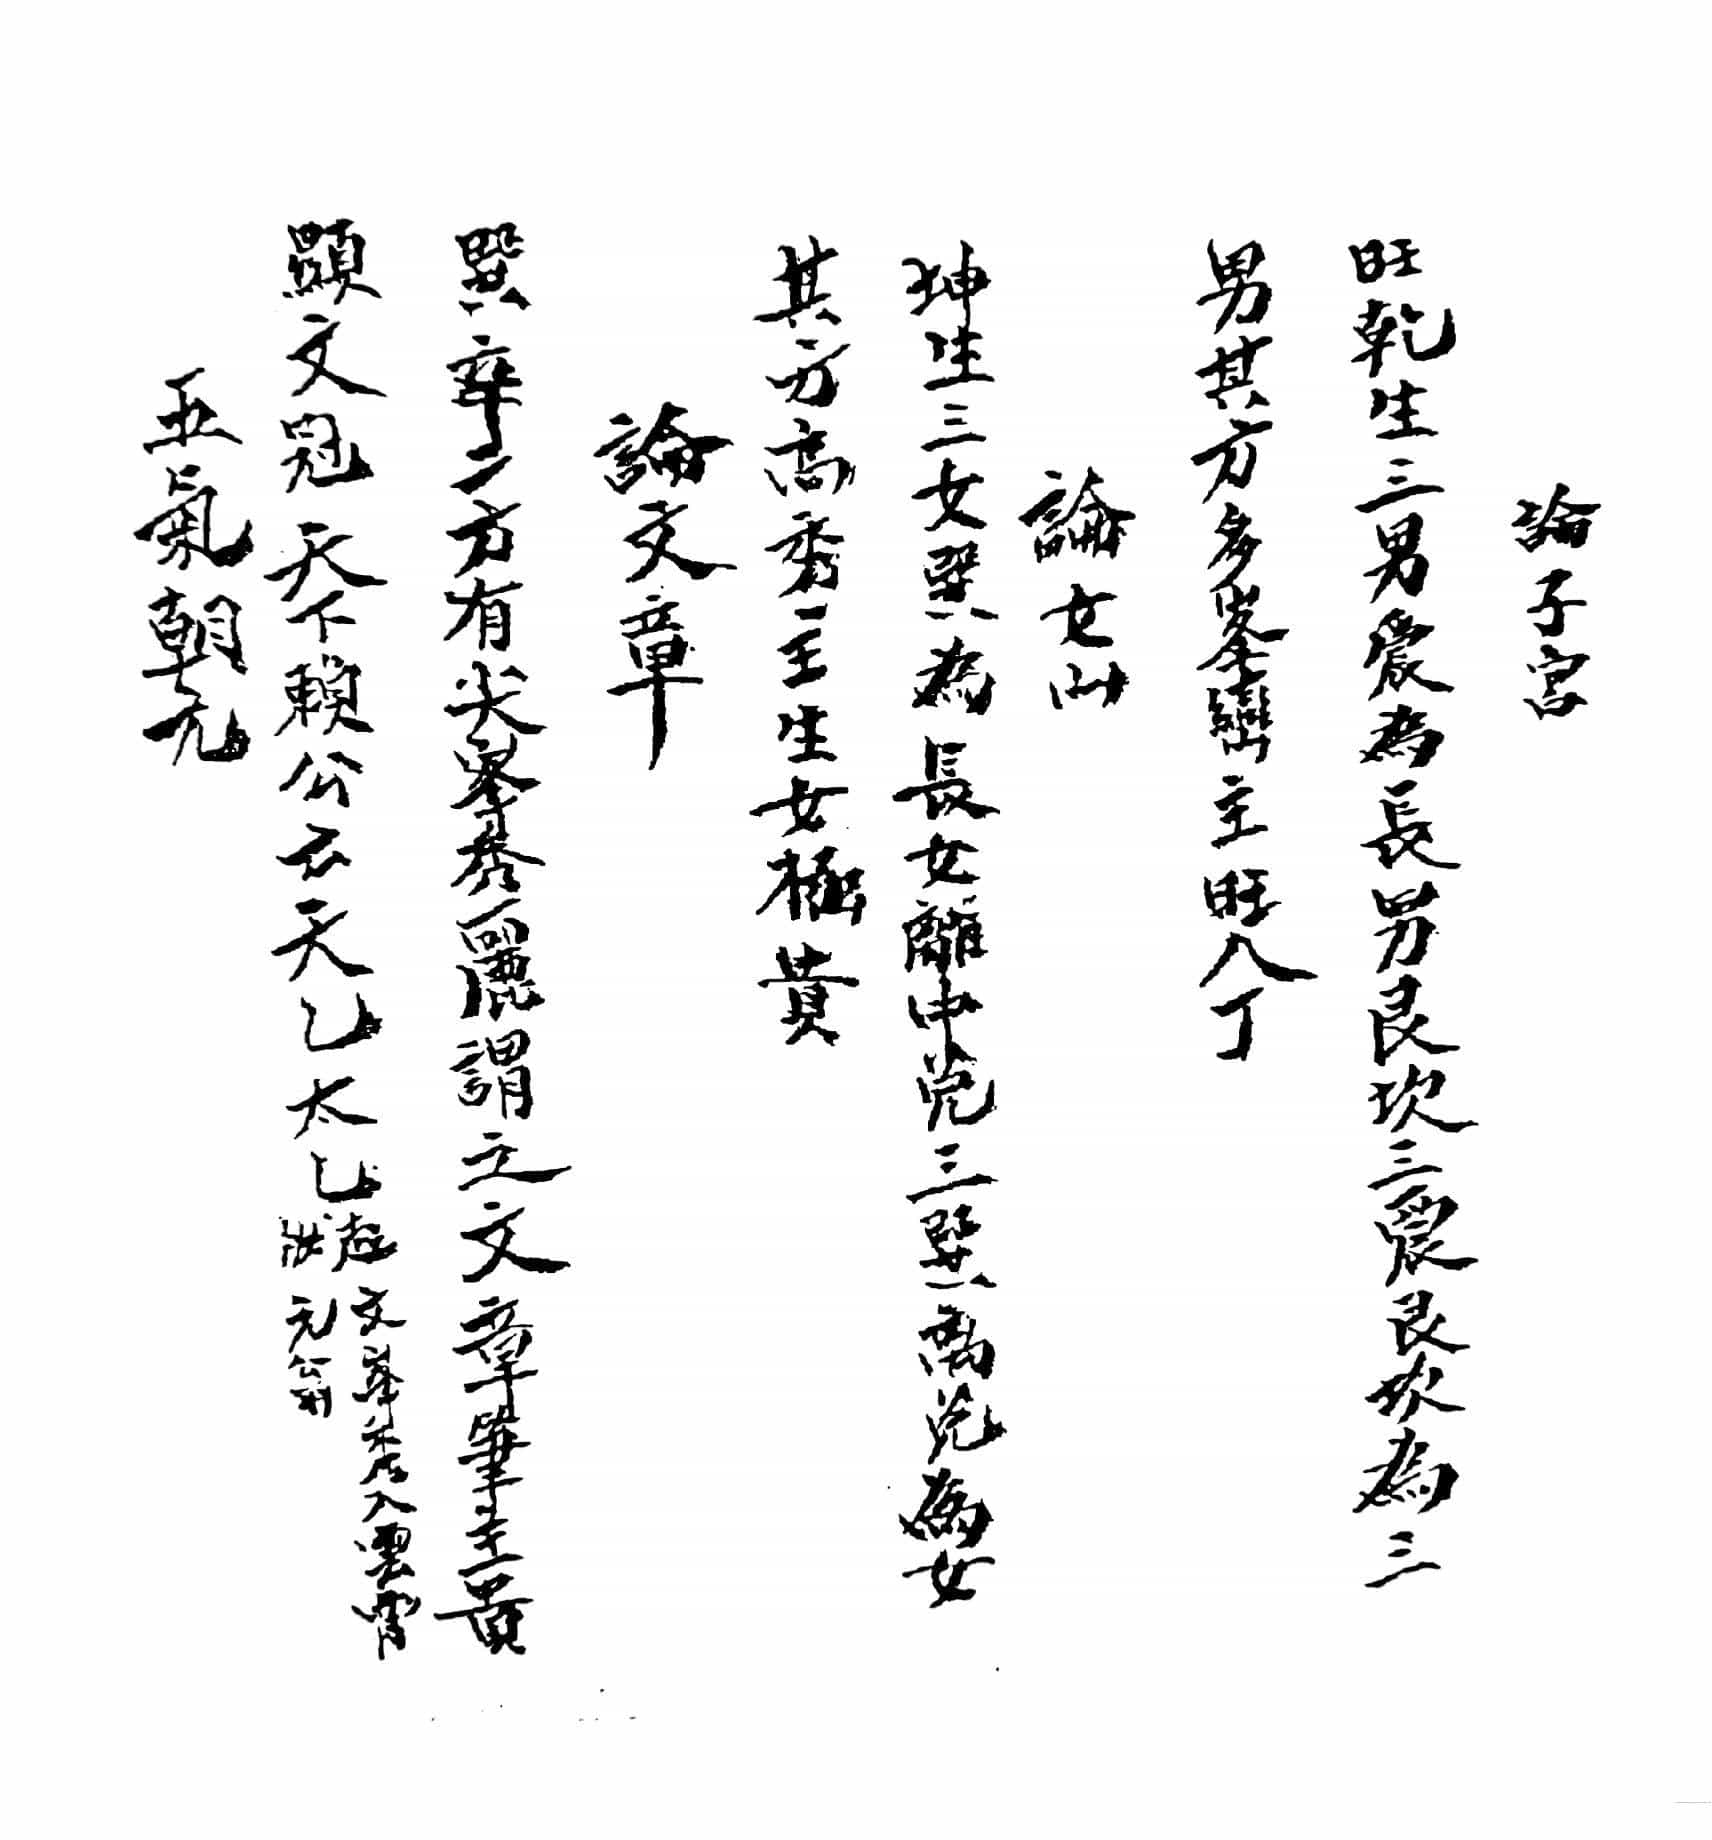 論子宮
旺乾生三男震為長男艮坎三震艮坎為三
男其方多峯巒主旺人丁
論女山
坤生三女巽為長女離中兌三巽离兌為女
其方高秀主生女極貴
論文章
巽辛二方有尖峯秀麗謂之文章筆主貴
顯文冠天下賴公云天乙太乙
起文峯秀入雲霄
狀元筆
五氣朝元